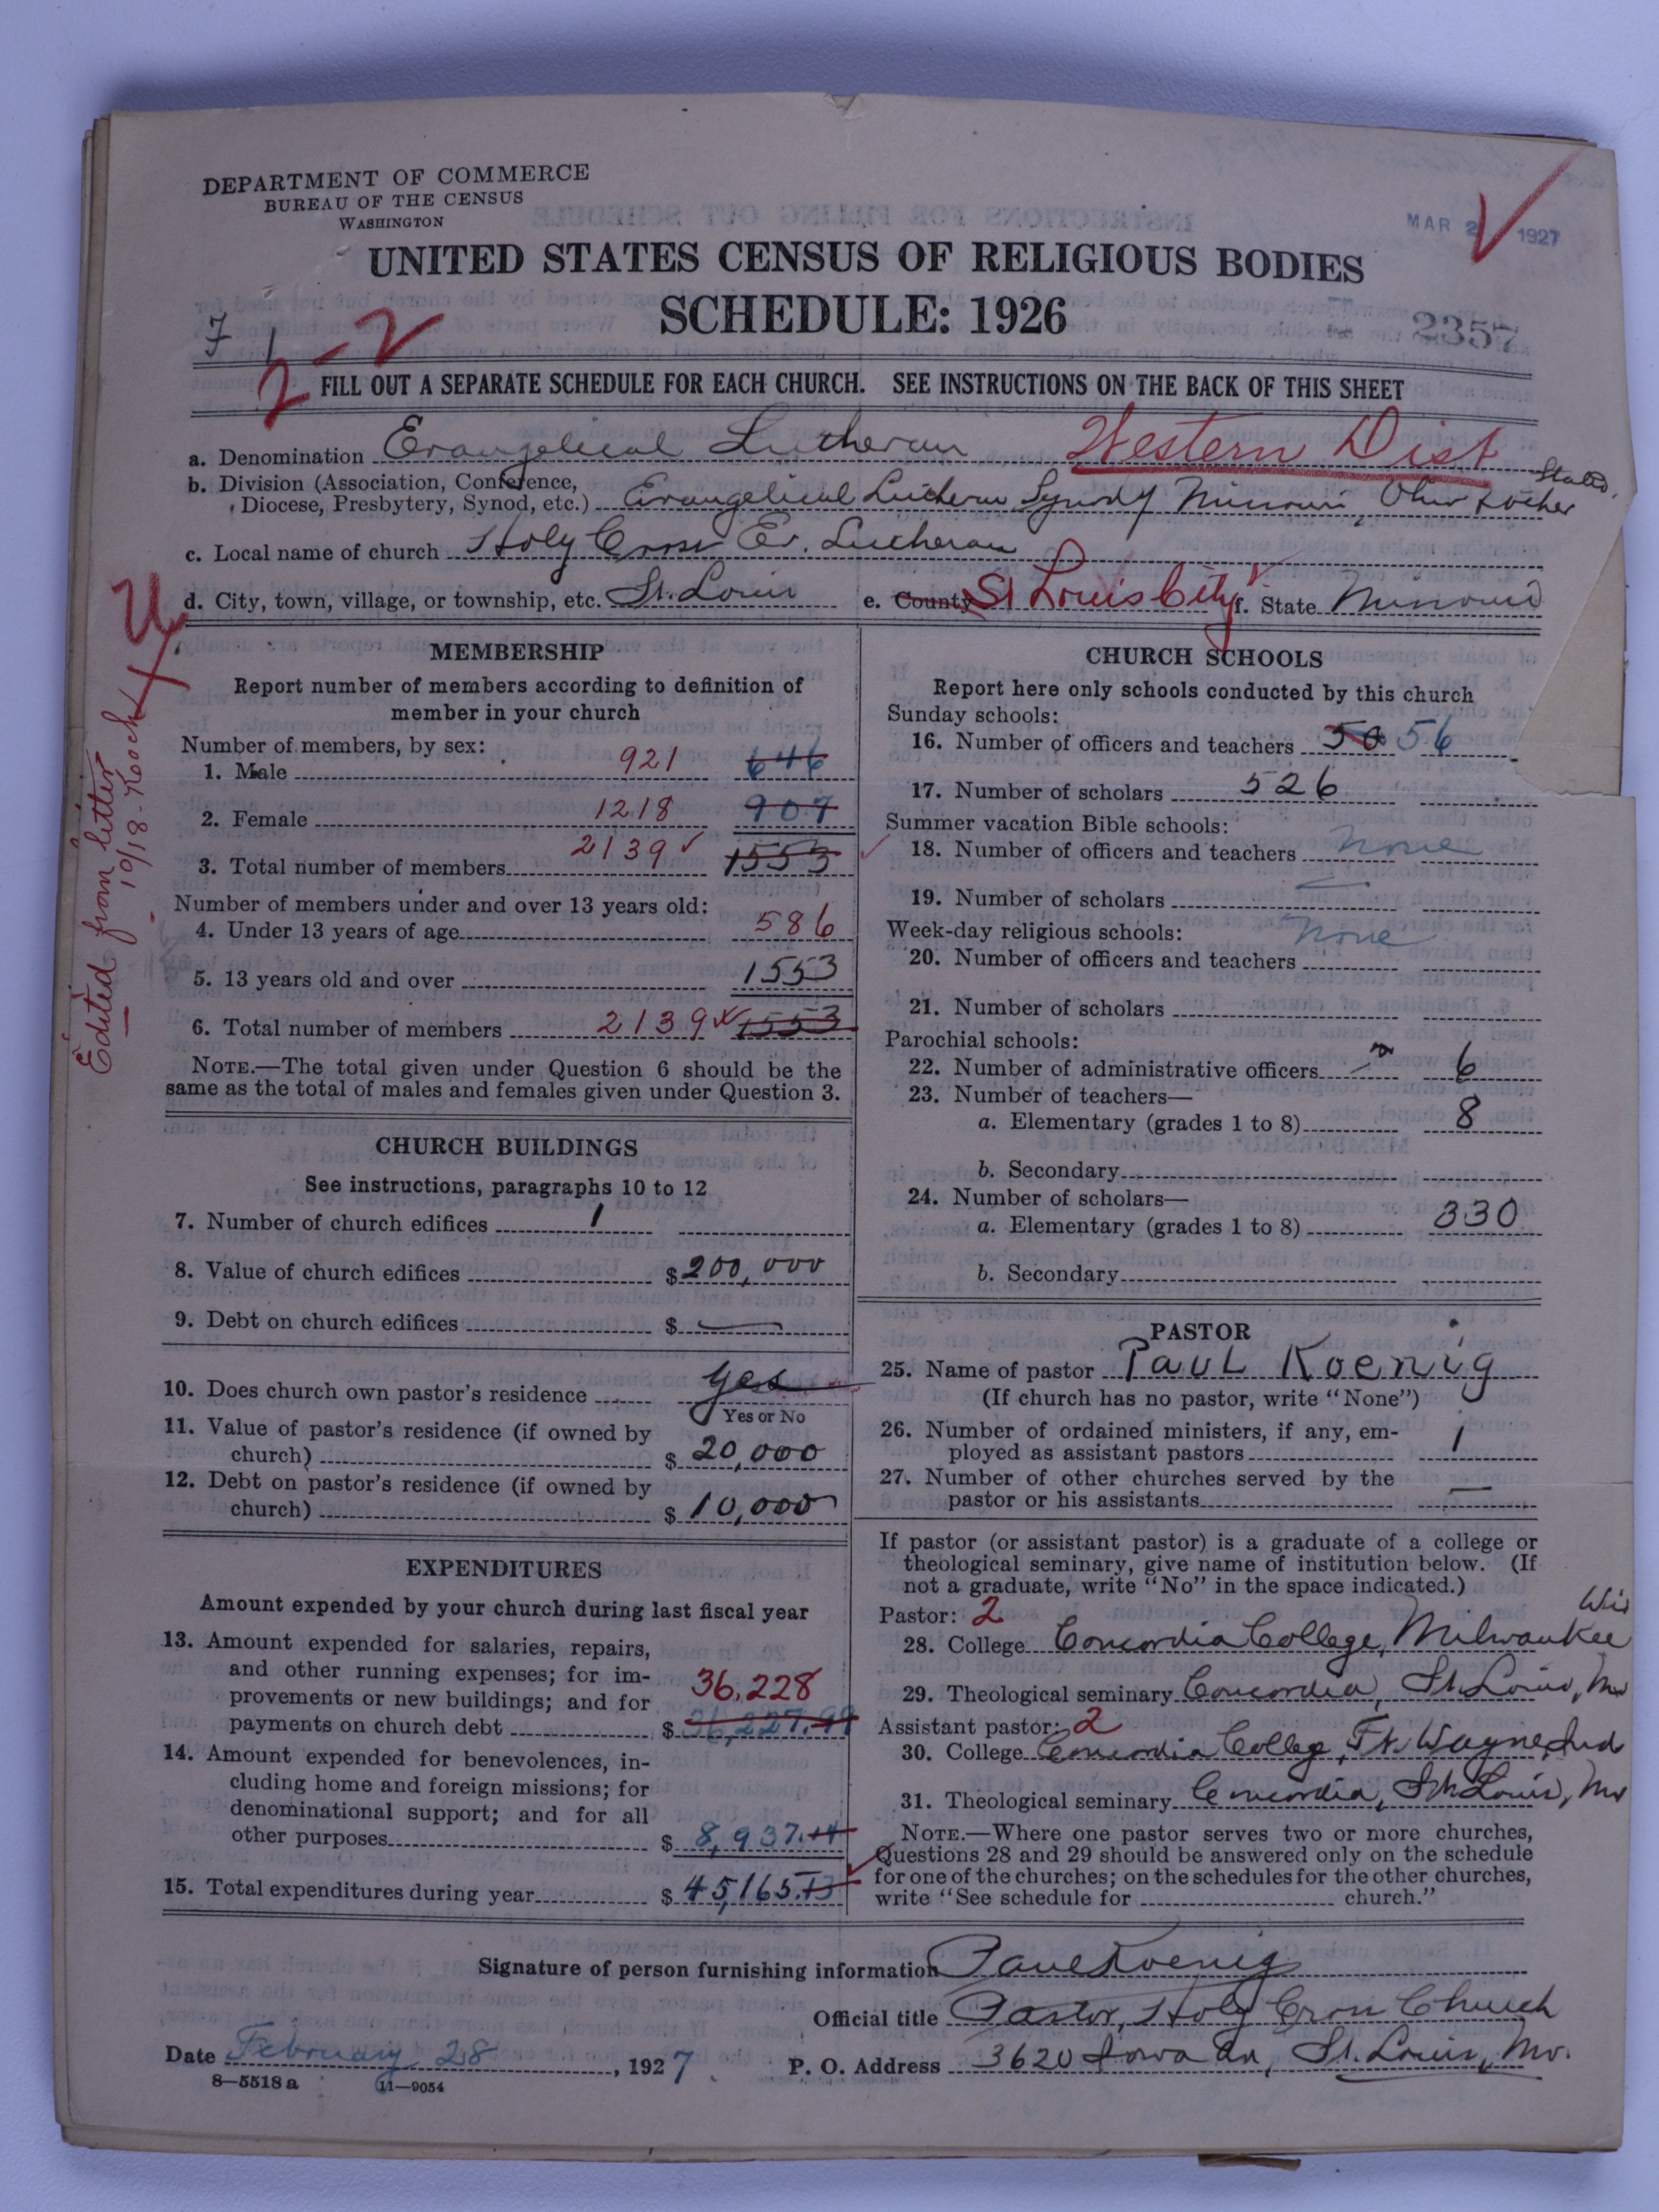 DEPARTMENT OF COMMERCE
BUREAU OF THE CENSUS
WASHINGTON
MAR 2 1927
UNITED STATES CENSUS OF RELIGIOUS BODIES
SCHEDULE: 1926
7 1
2357
2-2
FILL OUT A SEPARATE SCHEDULE FOR EACH CHURCH. SEE INSTRUCTIONS ON THE BACK OF THIS SHEET
a. Denomination Evangelical Lutheran Western Dist
b. Division (Association, Conference, Diocese, Presbytery, Synod, etc.) Evangelical Lutheran Synod of Missouri, Ohio & other States
c. Local name of church Holy Cross Ev. Lutheran
d. City, town, village, or township, etc. St. Louis e. County St Louis City f. State Missouri
Edited from letter
10/18-Kooch
MEMBERSHIP
Report number of members according to definition of
member in your church
Number of members, by sex:
1. Male 921 646
2. Female 1218 907
3. Total number of members 2139 1553
Number of members under and over 13 years old:
4. Under 13 years of age 586
5. 13 years old and over 1553
6. Total number of members 2139 1553
NOTE.—The total given under Question 6 should be the
same as the total of males and females given under Question 3.
CHURCH BUILDINGS
See instructions, paragraphs 10 to 12
7. Number of church edifices 1
8. Value of church edifices $200,000
9. Debt on church edifices $ —
10. Does church own pastor's residence yes
Yes or No
11. Value of pastor's residence (if owned by
church) $ 20,000
12. Debt on pastor's residence (if owned by
church) $ 10,000
EXPENDITURES
Amount expended by your church during last fiscal year
13. Amount expended for salaries, repairs,
and other running expenses; for im-
provements or new buildings; and for 36,228
payments on church debt $ 36,227.99
14. Amount expended for benevolences, in-
cluding home and foreign missions; for
denominational support; and for all
other purposes $ 8,937.14
15. Total expenditures during year $ 45,165.13
CHURCH SCHOOLS
Report here only schools conducted by this church
Sunday schools:
16. Number of officers and teachers 50 56
17. Number of scholars 526
Summer vacation Bible schools:
18. Number of officers and teachers none
19. Number of scholars
Week-day religious schools: none
20. Number of officers and teachers
21. Number of scholars
Parochial schools:
22. Number of administrative officers 6
23. Number of teachers—
a. Elementary (grades 1 to 8) 8
b. Secondary
24. Number of scholars—
a. Elementary (grades 1 to 8) 330
b. Secondary
PASTOR
25. Name of pastor Paul Koenig
(If church has no pastor, write "None")
26. Number of ordained ministers, if any, em-
ployed as assistant pastors 1
27. Number of other churches served by the
pastor or his assistants —
If pastor (or assistant pastor) is a graduate of a college or
theological seminary, give name of institution below. (If
not a graduate, write "No" in the space indicated.)
Pastor: 2
28. College Concordia College, Milwaukee Wis
29. Theological seminary Concordia, St. Louis, Mo
Assistant pastor: 2
30. College Concordia College, Ft. Wayne, Ind
31. Theological seminary Concordia, St. Louis, Mo
NOTE.—Where one pastor serves two or more churches,
Questions 28 and 29 should be answered only on the schedule
for one of the churches; on the schedules for the other churches,
write "See schedule for church."
Signature of person furnishing information Paul Koenig
Official title Pastor, Holy Cross Church
Date February 28, 1927 P. O. Address 3620 Iowa Av, St. Louis, Mo.
8—5518 a 11—9054